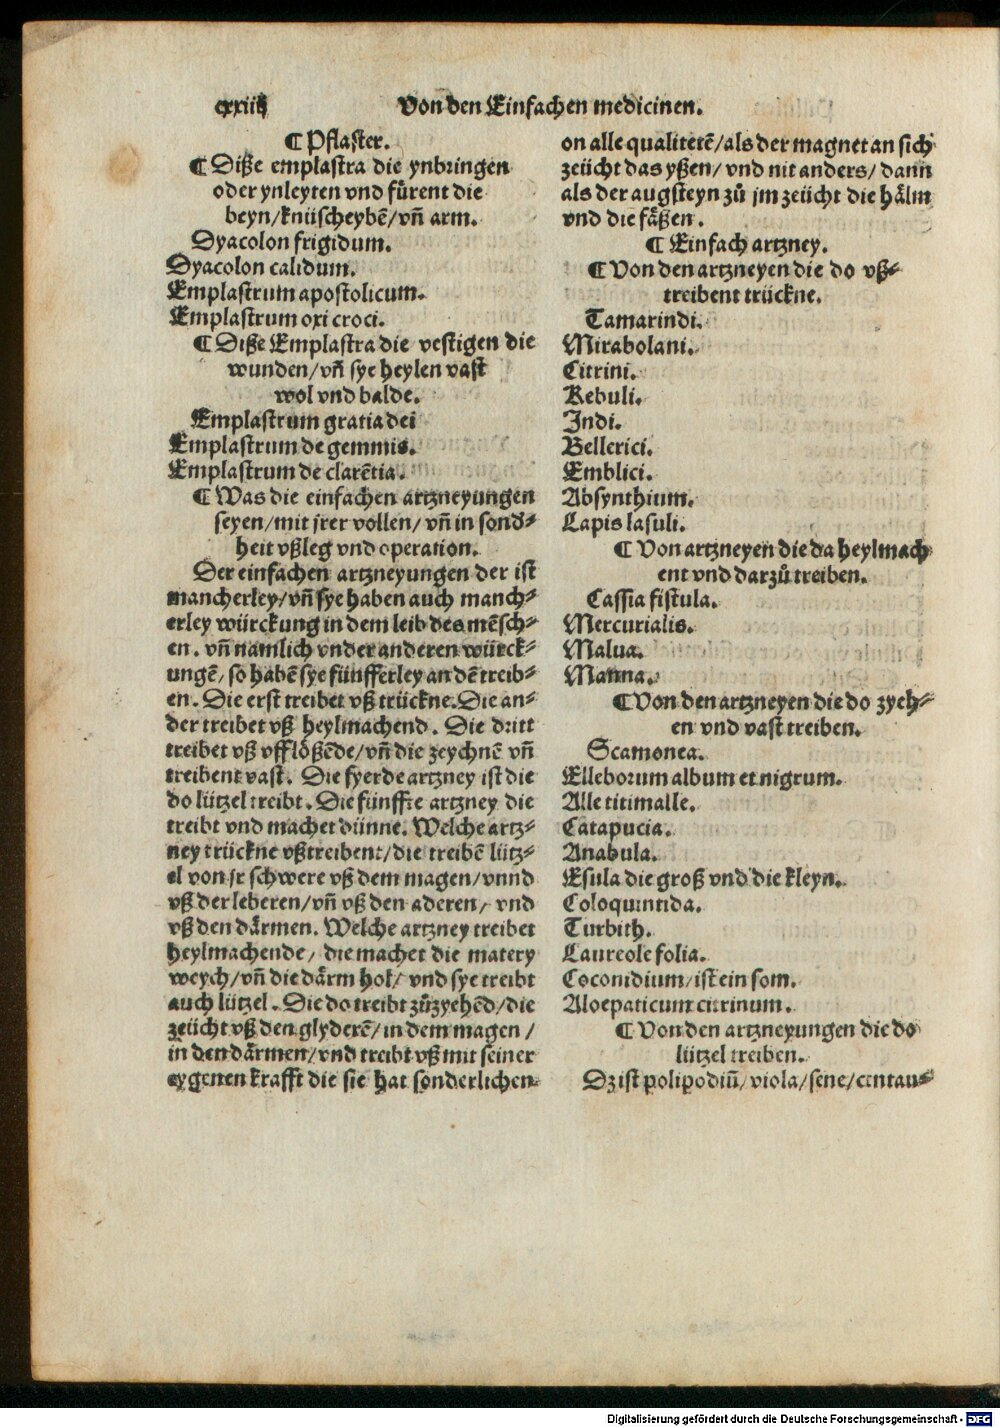 Von den Einfachen medicinen.
¶ Pflaster.
¶ Diße emplastra die ynbringen
oder ynleyten vnd fürent die
beyn/knüscheybē/vñ arm.
Dyacolon frigidum.
Dyacolon calidum.
Emplastrum apostolicum.
Emplastrum oxi croci.
¶ Diße Emplastra die vestigen die
wunden/vñ sye heylen vast
wol vnd balde.
Emplastrum gratia dei
Emplastrum de gemmis.
Emplastrum de clarētia.
¶ Was die einfachen artzneyungen
seyen/mit jrer vollen/vñ in sond⸗
heit vßleg vnd operation.
Der einfachen artzneyungen der ist
mancherley/vñ sye haben auch manch⸗
erley würckung in dem leib des mēsch⸗
en. vñ namlich vnder anderen würck⸗
ungē, so habē sye fünfferley an dē treib⸗
en. Die erst treibet vß trückne. Die an⸗
der treibet vß heylmachend. Die dritt
treibet vß vfflößēde/vñ die zeychnē vñ
treibent vast. Die fyerde artzney ist die
do lützel treibt. Die fünffte artzney die
treibt vnd machet dünne. Welche artz⸗
ney trückne vßtreibent/die treibē lütz⸗
el von jr schwere vß dem magen/vnnd
vß der leberen/vñ vß den aderen/vnd
vß den därmen. Welche artzney treibet
heylmachende/ die machet die matery
weych/vñ die därm hol/ vnd sye treibt
auch lützel. Die do treibt zůzyehēd/die
zeücht vß den glyderē/in dem magen/
in den därmen/vnd treibt vß mit seiner
eygenen krafft die sie hat sonderlichen
on alle qualitetē/als der magnet an sich
zeücht das yßen/ vnd nit anders/ dann
als der augsteyn zů jm zeücht die hälm
vnd die fäßen.
¶ Einfach artzney.
¶ Von den artzneyen die do vß⸗
treibent trückne.
Tamarindi.
Mirabolani.
Citrini.
Kebuli.
Indi.
Bellerici.
Emblici.
Absynthium.
Lapis lasuli.
¶ Von artzneyen die da heylmach
ent vnd darzů treiben.
Cassia fistula.
Mercurialis.
Malua.
Manna.
¶ Von den artzneyen die do zyeh⸗
en vnd vast treiben.
Scamonea.
Elleborum album et nigrum.
Alle titimalle.
Catapucia.
Anabula.
Esula die groß vnd die kleyn.
Coloquintida.
Turbith.
Laureole folia.
Coconidium/ist ein som.
Aloepaticum citrinum.
¶ Von den artzneyungen die do
lützel treiben.
Dz ist polipodiū/viola/sene/centau⸗
Digitalisierung gefördert durch die Deutsche Forschungsgemeinschaft - DFG